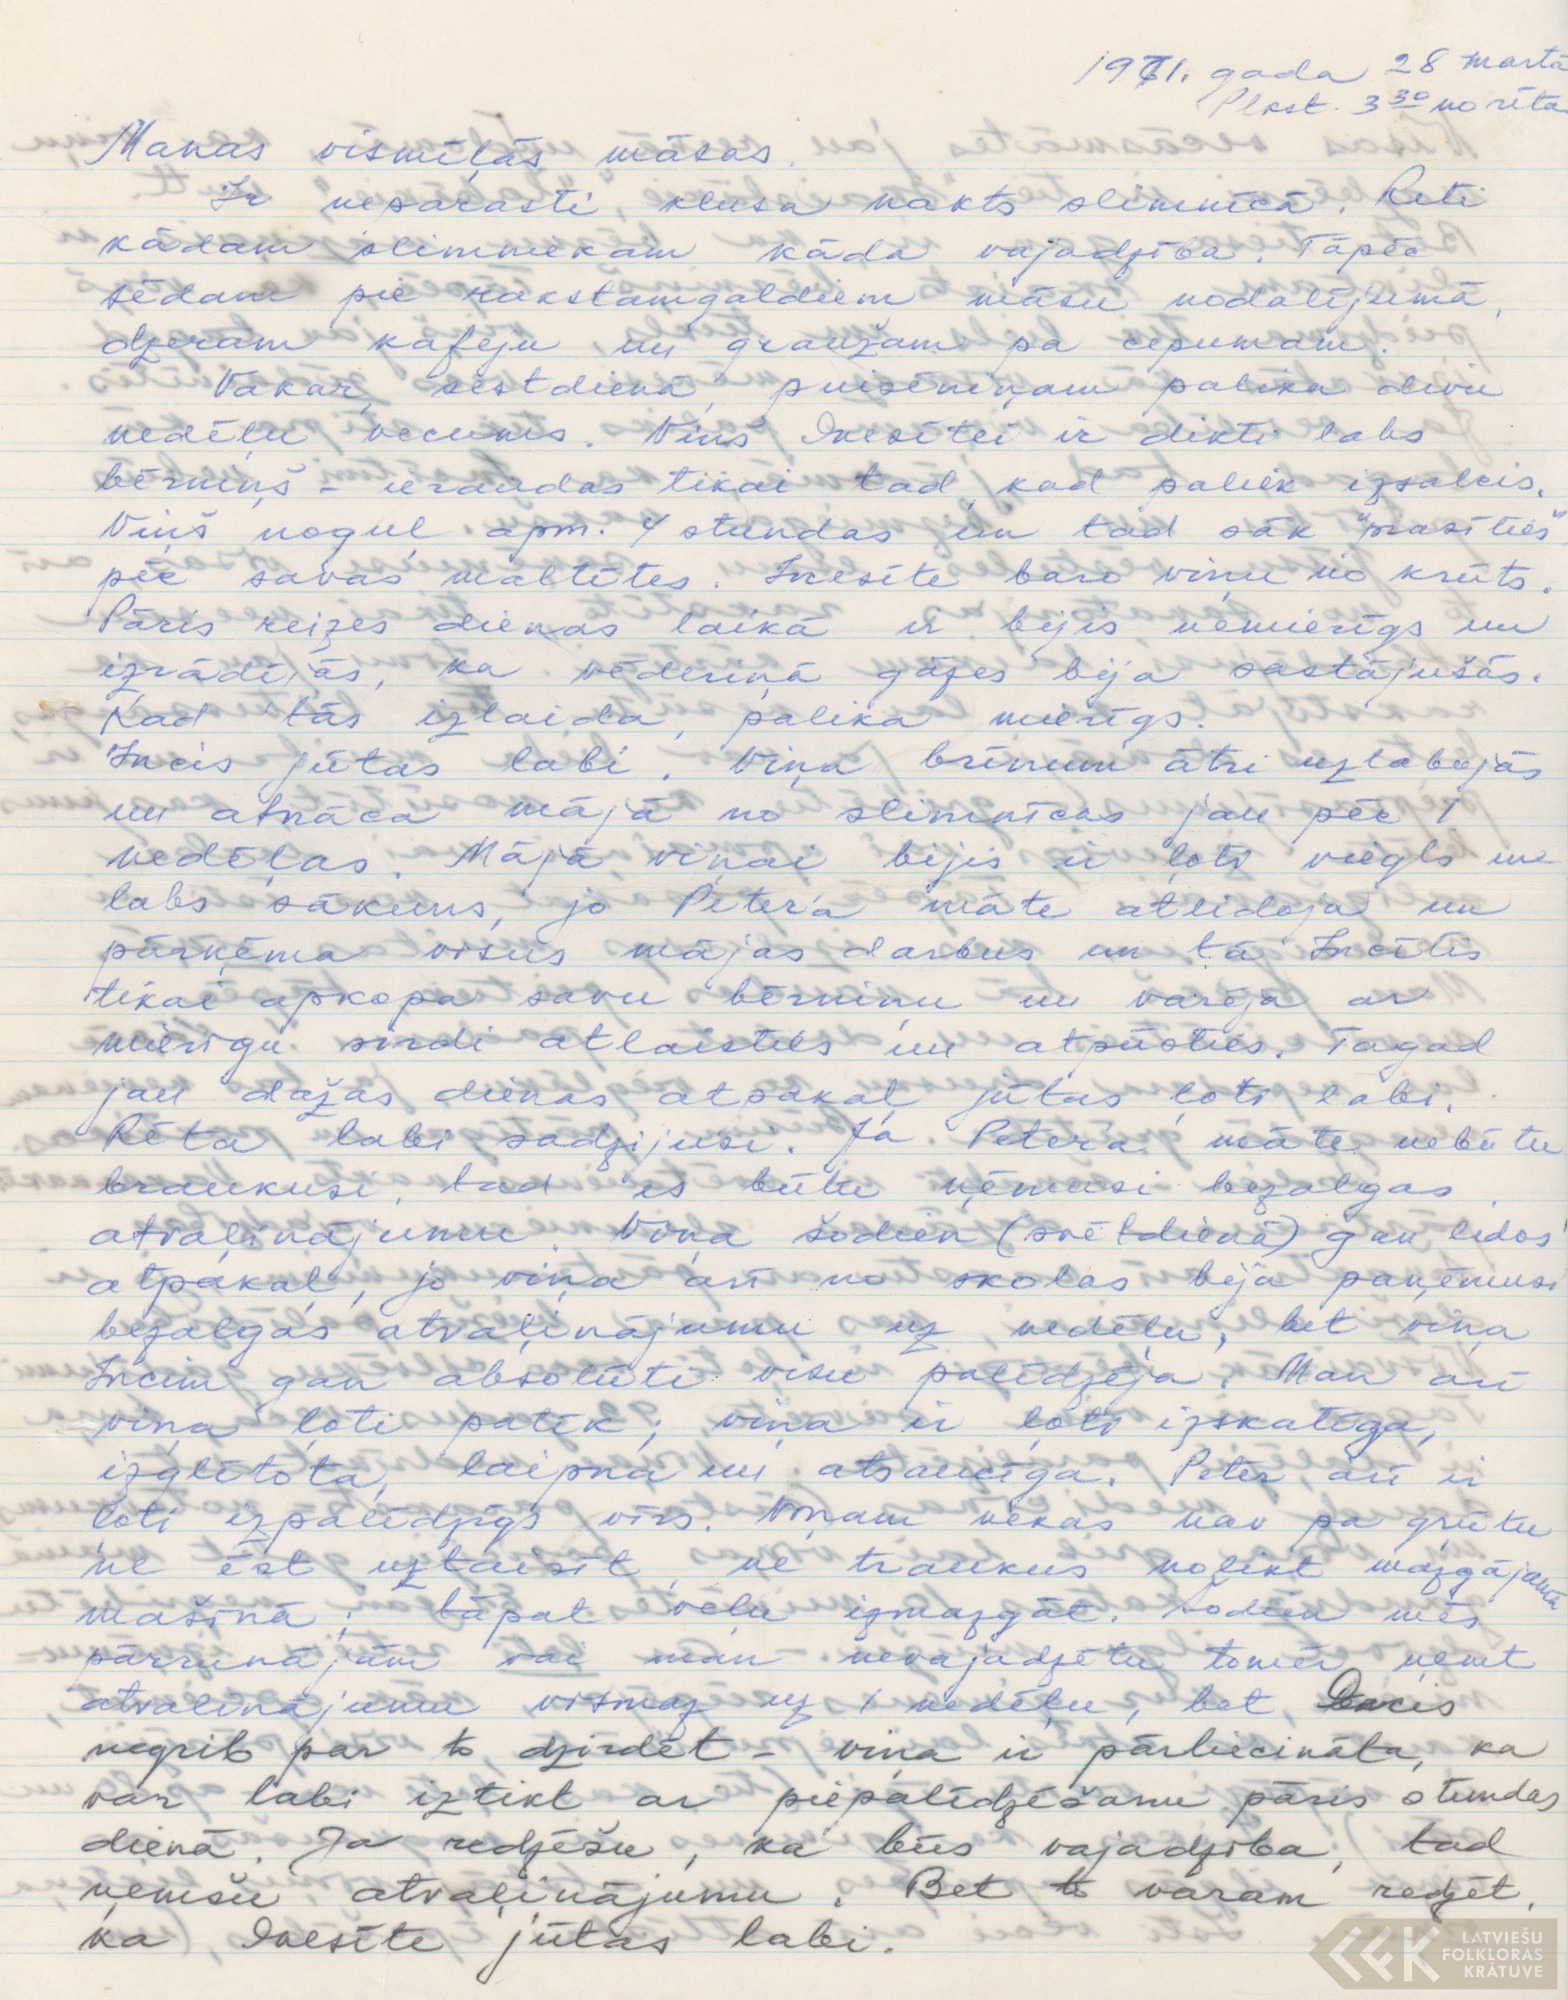 1971. gada 28 martā
Plkst. 3 30 no rīta
Manas vismīļās māsas.
Ir neparasti klusa nakts slimnīcā. Reti
kādam slimniekam kāda vajadzība. Tāpēc
sēdam pie rakstamgaldiem māsu nodalījumā,
dzeram kafeju un graužam pa cepumam.
Vakar, sestdienā, puisēniņam palika divu
nedēļu vecums. Viņš Inesītei ir dikti labs
bērniņš - ieraudas tikai tad, kad paliek izsalcis.
Viņš noguļ apm. 4 stundas un tad sāk "prasīties"
pēc savas maltītes. Inesīte baro viņu no krūts.
Pāris reizes dienas laikā ir bijis nemierīgs un
izrādījās, ka vēderiņā gāzes bija sastājušās.
Kad tās izlaida, palika mierīgs.
Incis jūtas labi. Viņa brīnum ātri uzlabojās
un atnāca mājā no slimnīcas jau pēc 1
nedēļas. Mājā viņai bijis ir ļoti viegls un
labs sākums, jo Peter'a māte atlidoja un
pārņēma visus mājas darbus un tā Incītis
tikai apkopa savu bērniņu un varēja ar
mierīgu sirdi atlaisties un atpūsties. Tagad
jau dažas dienas atpakaļ jūtas ļoti labi.
Rēta labi sadzijusi. Ja Peter'a māte nebūtu
braukusi, tad es būtu ņēmusi bezalgas
atvaļinājumu. Viņa šodien (svētdienā) gan lidos
atpakaļ, jo viņa arī no skolas bija paņēmusi
bezalgas atvaļinājumu uz nedēļu, bet viņa
Incim gan absolūti visu palīdzēja. Man arī
viņa ļoti patīk; viņa ir ļoti izskatīga,
izglītota, laipna un atsaucīga. Peter arī ir
ļoti izpalīdzīgs vīrs. Viņam nekas nav pa grūtu
ne ēst uztaisīt, ne traukus nolikt mazgājamā
mašīnā; tāpat veļu izmazgāt. Šodien mēs
pārrunājām vai man nevajadzētu tomēr ņemt
atvaļinājumu vismaz uz 1 nedēļu, bet Incis
negrib par to dzirdēt - viņa ir pārliecināta, ka
var labi iztikt ar piepalīdzēšanu pāris stundas
dienā. Ja redzēšu, ka būs vajadzība, tad
ņemšu atvaļinājumu. Bet to varam redzēt,
ka Inesīte jūtas labi.
LATVIEŠU
FOLKLORAS
KRĀTUVE